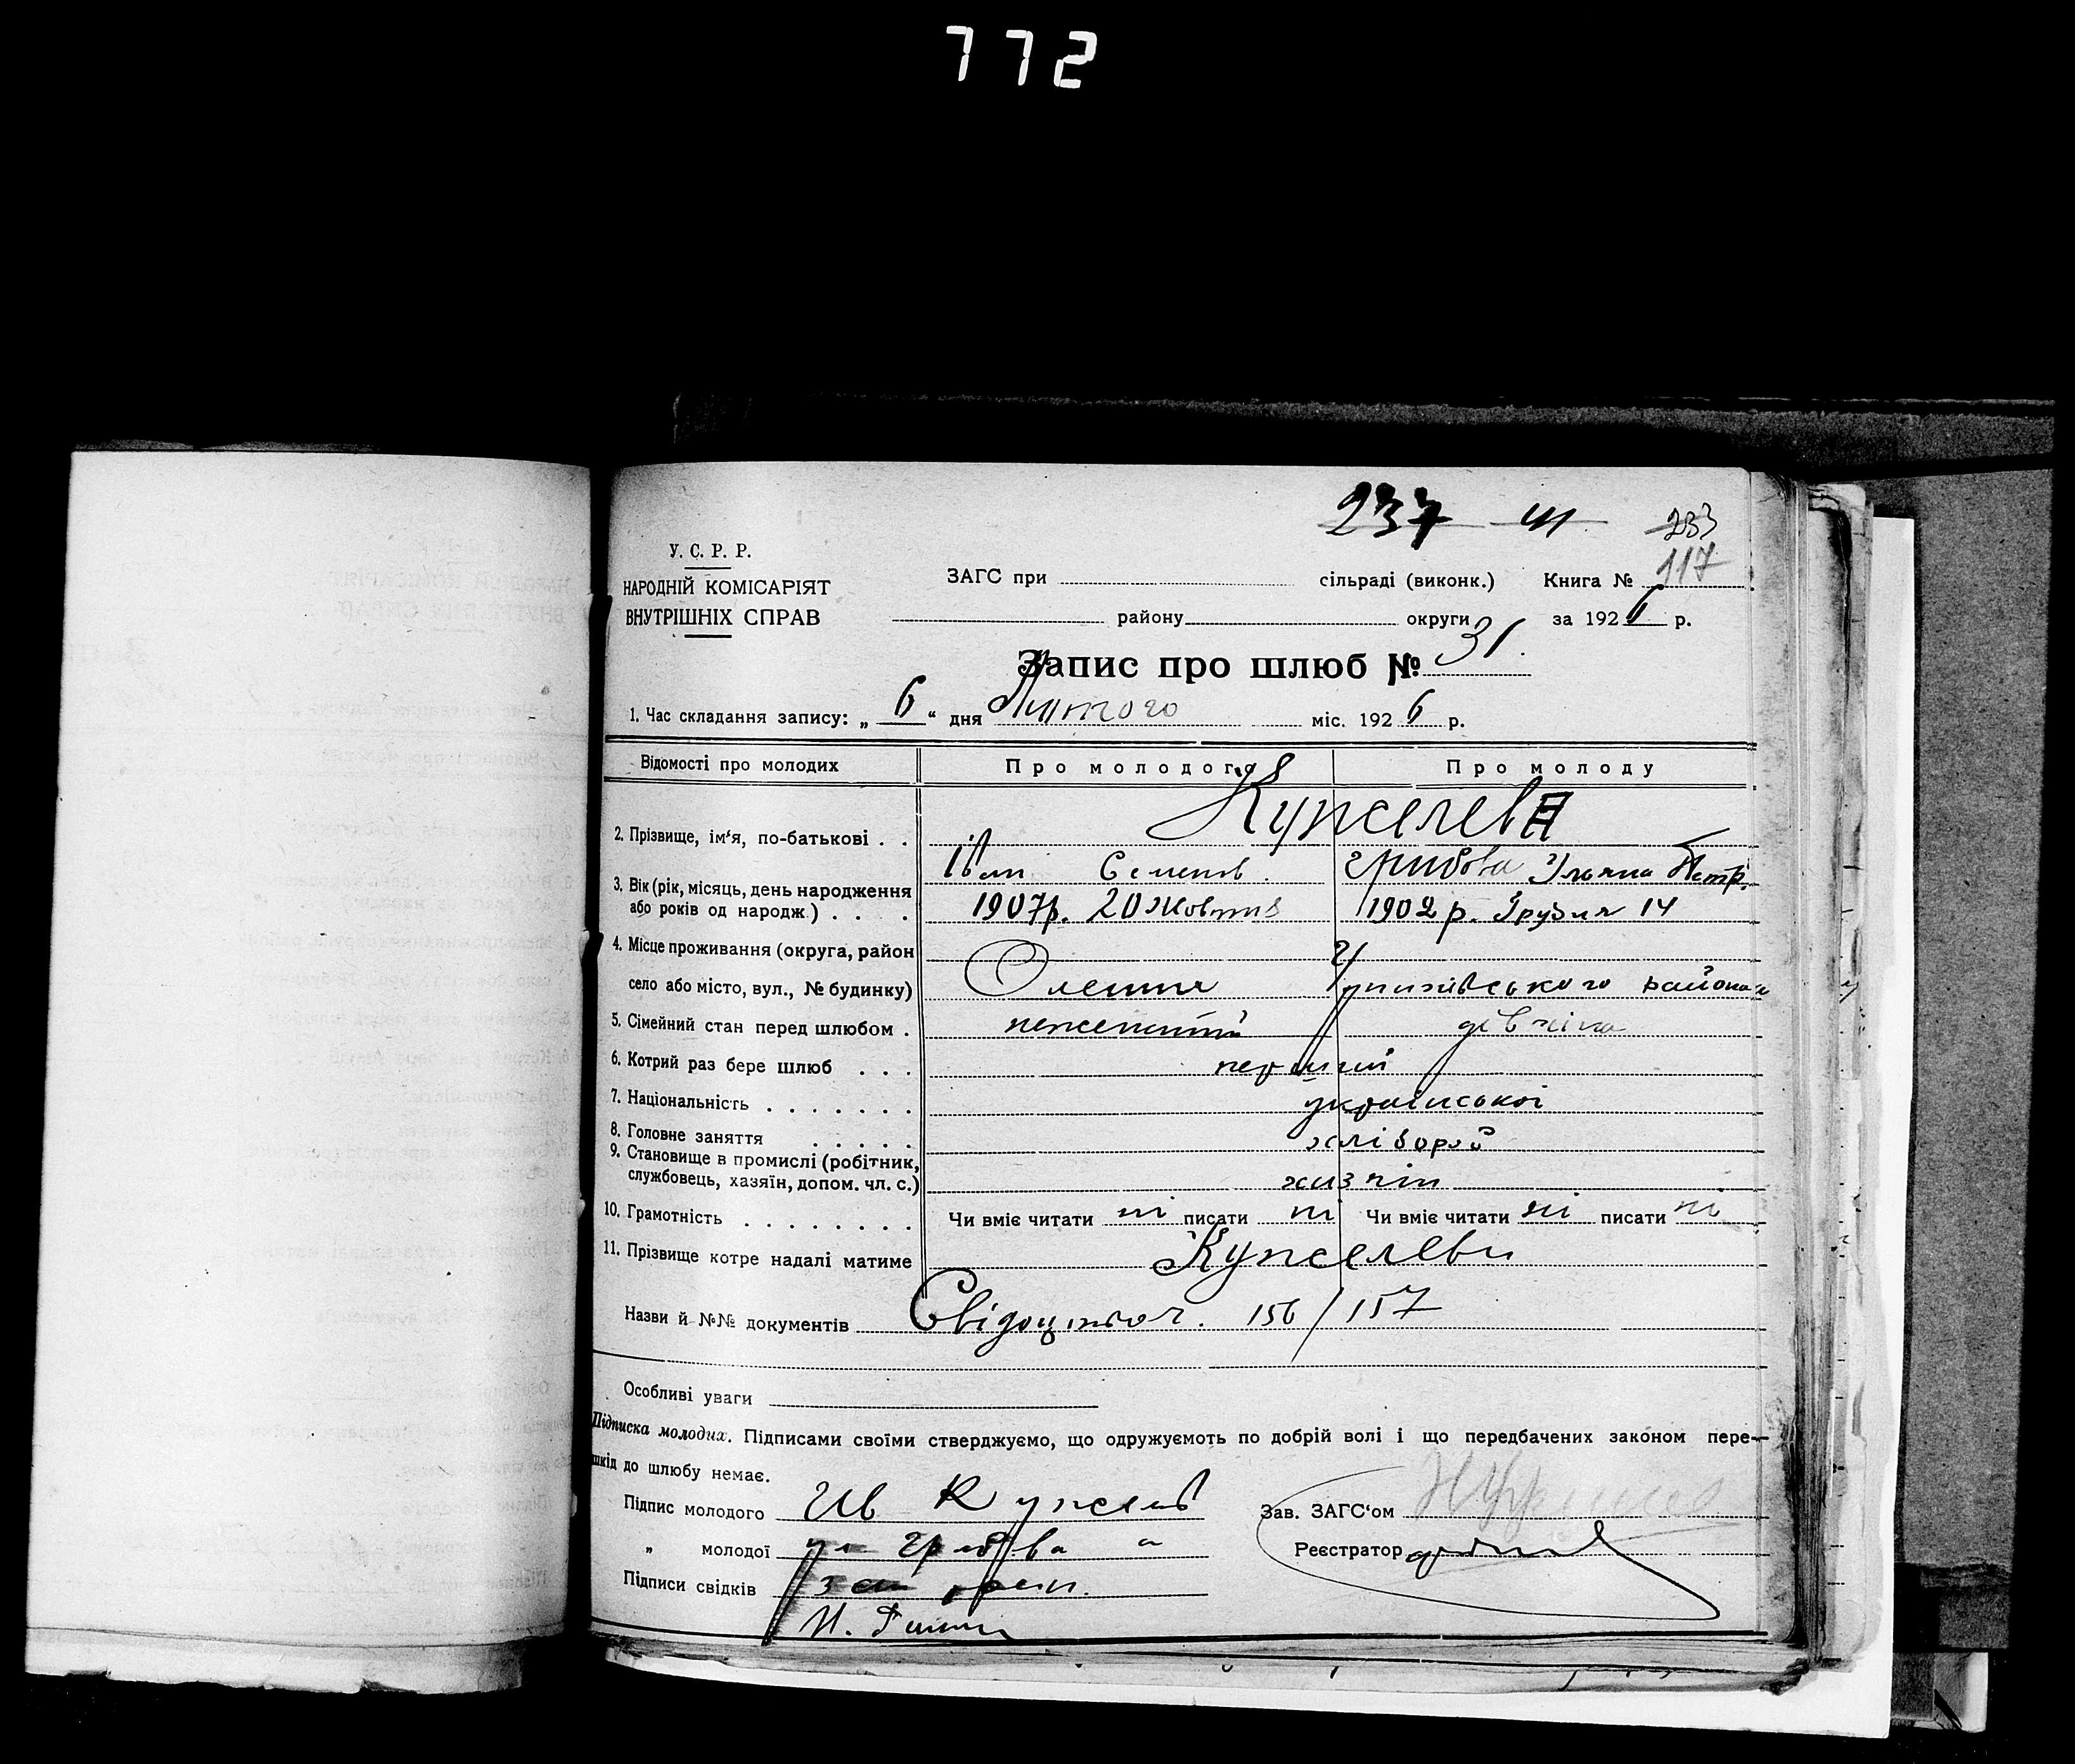 772
237 233
У. С. Р. Р. 117
НАРОДНІЙ КОМІСАРІЯТ ЗАГС при сільраді (виконк.) Книга №
ВНУТРІШНІХ СПРАВ району округи за 1926 р.
Запис про шлюб № 31.
1. Час складання запису: „ 6 “ дня Лютого міс. 1926 р.
Відомості про молодих Про молодого Про молоду
2. Прізвище, ім‘я, по-батькові . . Кужелев
Іван Семенов. Грибова Уляна Петр.
3. Вік (рік, місяць, день народження
або років од народж.) . . . . 1907р. 20 Жовтня 1902 р. Грудня 14
4. Місце проживання (округа, район
село або місто, вул., № будинку) Олешня району
5. Сімейний стан перед шлюбом . неженатий дівчина
6. Котрий раз бере шлюб . . . перший
7. Національність . . . . . . . української
8. Головне заняття . . . . . хлібороб
9. Становище в промислі (робітник,
службовець, хазяїн, допом. чл. с.) хазяїн
10. Грамотність . . . . . . . . Чи вміє читати ні писати ні Чи вміє читати ні писати ні
11. Прізвище котре надалі матиме Кужелеви
Назви й №№ документів Свідоцтвол. 156/157
Особливі уваги
Підписка молодих. Підписами своїми стверджуємо, що одружуємоть по добрій волі і що передбачених законом пере-
шкід до шлюбу немає.
Підпис молодого Ив Кужелев Зав. ЗАГС‘ом
„ молодої Грибова Реєстратор
Підписи свідків